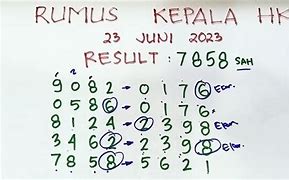 RUMUS KEPALA HK
23 JUNI 2023
RESULT : 7858 SAH
9082 → 0176
0586 → 0176
8124 → 2398
3462 → 2398
7858 → 5621